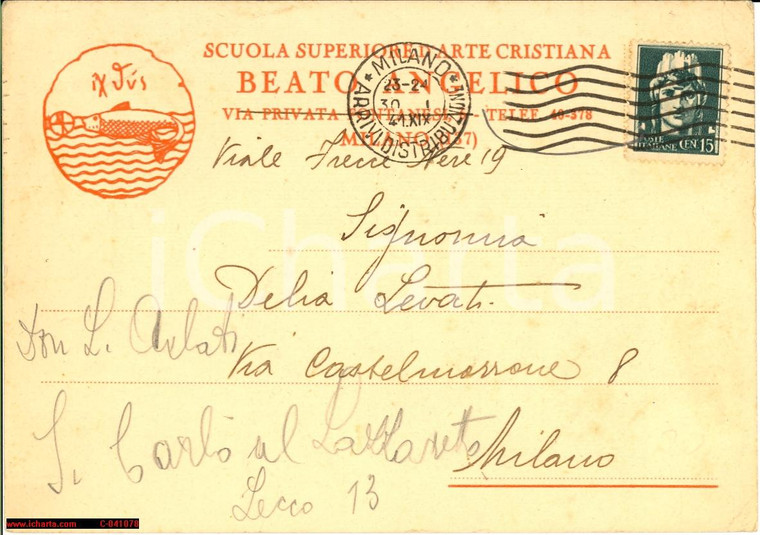 ἰχθύς
SCUOLA SUPERIORE D'ARTE CRISTIANA
BEATO ANGELICO
VIA PRIVATA TELEF. 40-378
MILANO (137)
MILANO
23-24
30 I
41 XIX
ARRIVI DISTRIBUZIONE
POSTE ITALIANE CENT. 15
Viale Frere Nere 19
Signorina
Delia Levati
Via Castelmorrone 8
Milano
Don L. Arlati
S. Carlo al Lazzaretto
Lecco 13
iCharta
www.icharta.com C-041078